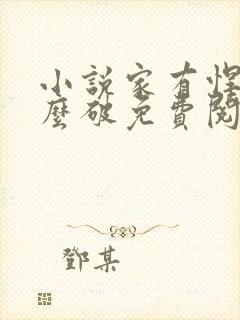 小說家有悍
麼破免費閱
鄧某